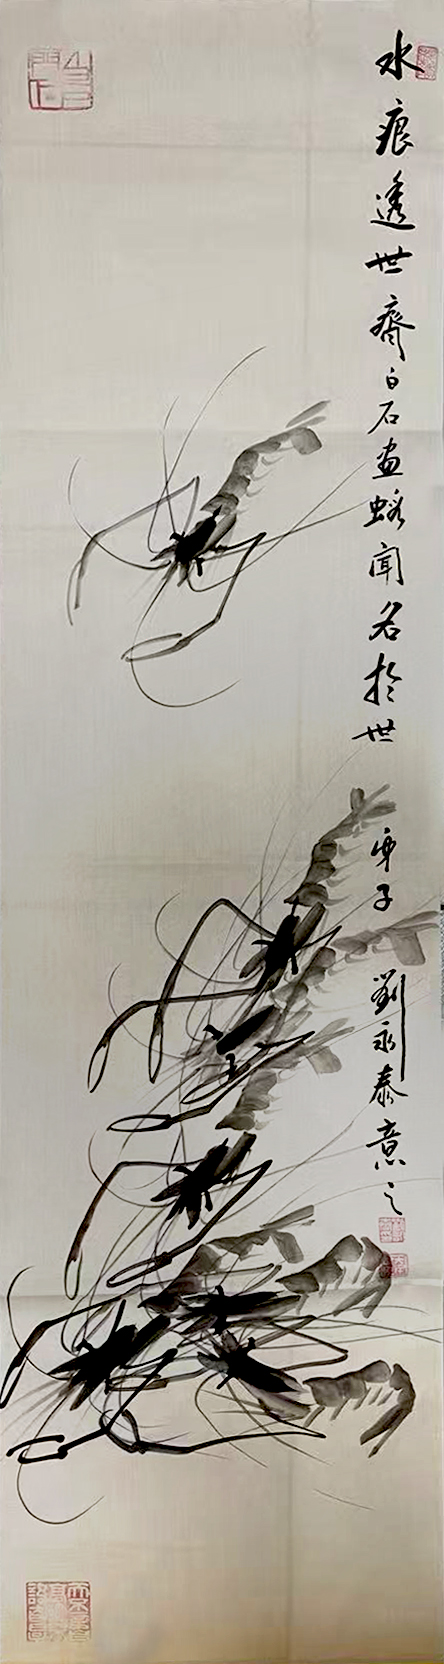 水痕透世齊白石画蝦聞名於世 庚子 劉永泰意之